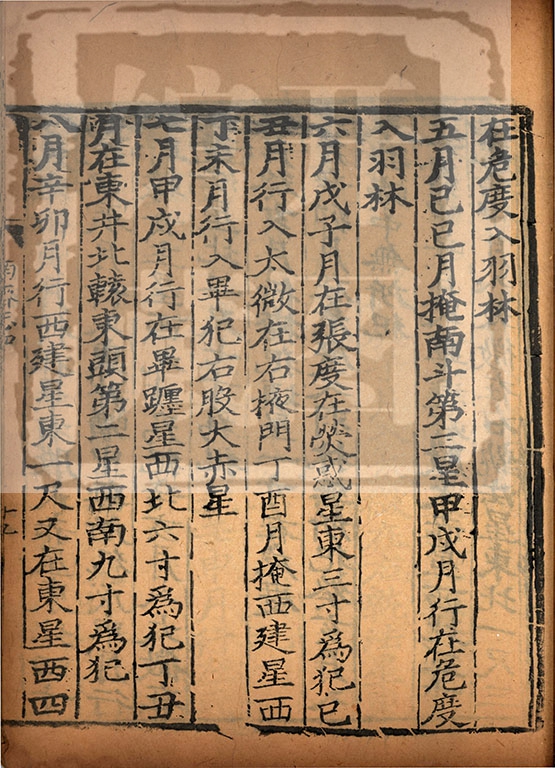 在危度入羽林
五月己巳月掩南斗第二星甲戌月行在危度
入羽林
六月戊子月在張度在熒惑星東三寸爲犯己
丑月行入太微在右掖門丁酉月掩西建星西
丁未月行入畢犯右股大赤星
七月甲戌月行在畢躔星西北六寸爲犯丁丑
月在東井北轅東頭第二星西南九寸爲犯
八月辛卯月行西建星東一尺又在東星西四